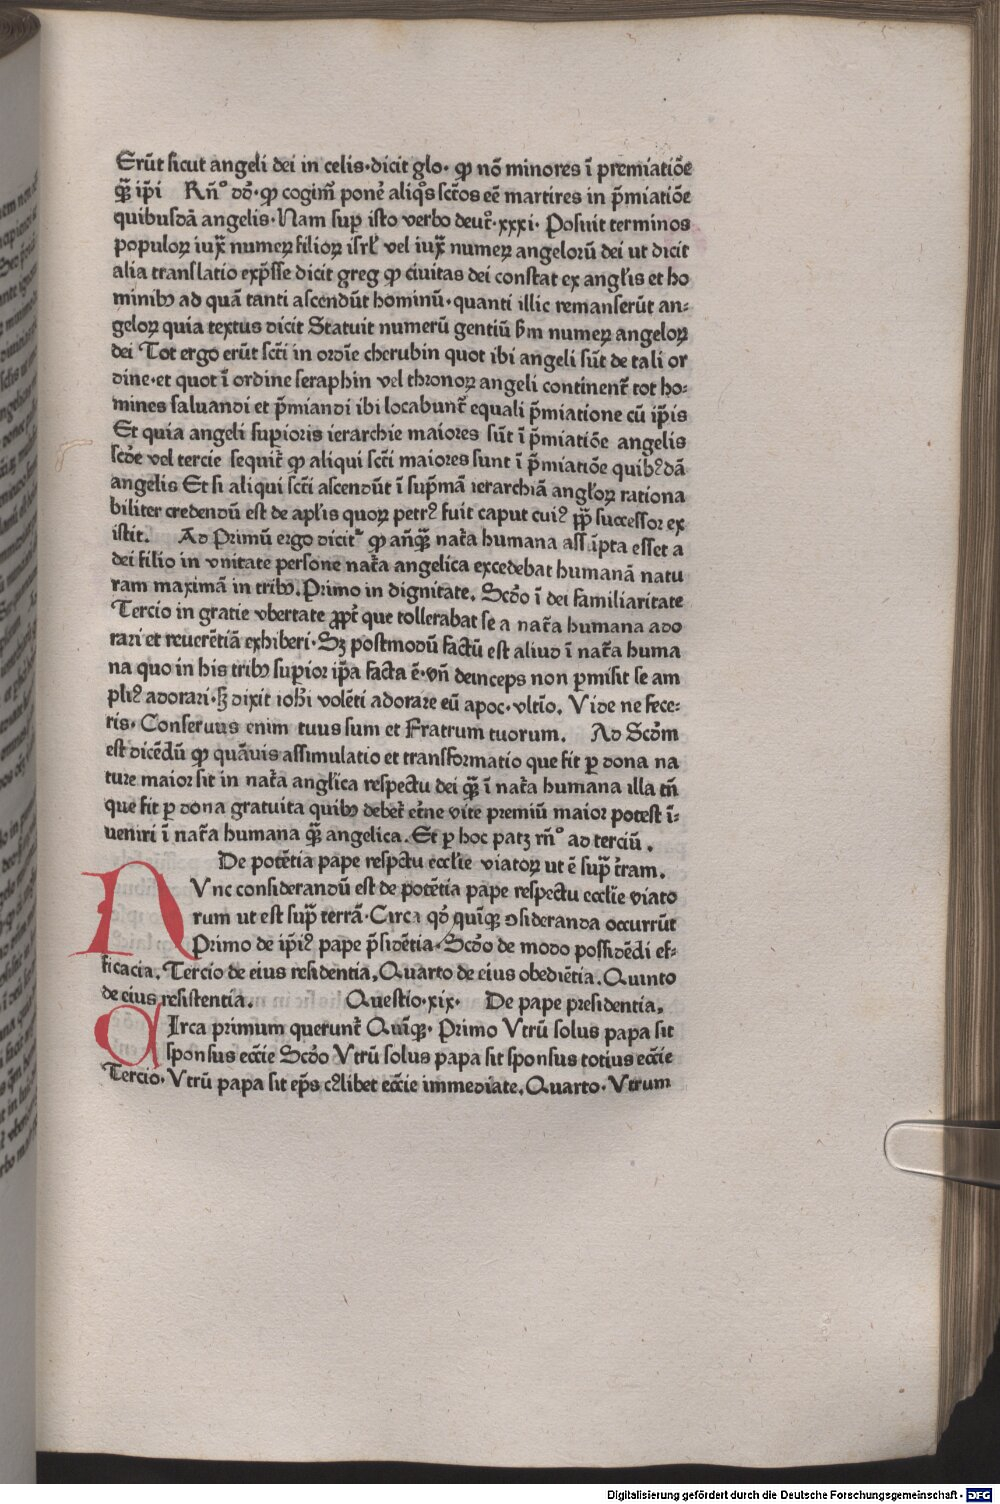 Erūt sicut angeli dei in celis·dicit glo· ꝙ nō minores ī premiatiōe
q̄ꝫ ip̄i    Rn̄° dō·ꝙ cogim̄ ponē aliq̄s sct̄os eē martires in p̄miatiōe
quibusdā angelis·Nam sup̱ isto verbo deut̄·xxxi· Posuit terminos
populoꝝ iux̄ numeꝝ filioꝝ isrł vel iux̄ numeꝝ angelorū dei ut dicit
alia translatio exp̄sse dicit greg ꝙ ciuitas dei constat ex angłis et ho
minibꝰ ad quā tanti ascendūt hominū·quanti illic remanserūt an⸗
geloꝝ quia textus dicit Statuit numerū gentiū ẜm numeꝝ angeloꝝ
dei Tot ergo erūt sct̄i in ordīe cherubin quot ibi angeli sūt de tali or
dine·et quot ī ordine seraphin vel thronoꝝ angeli continent̄ tot ho⸗
mines saluandi et p̄miandi ibi locabunt̄ equali p̄miatione cū ip̄is
Et quia angeli sup̱ioris ierarchie maiores sūt ī p̄miatiōe angelis
scd̄e vel tercie sequit̄ ꝙ aliqui sct̄i maiores sunt ī p̄miatiōe quibꝰdā
angelis Et si aliqui sct̄i ascendūt ī sup̄mā ierarchiā angłoꝝ rationa
biliter credendū est de apłis quoꝝ petrꝰ fuit caput cuiꝰ pp̄ successor ex
istit.    Ad Primū ergo dicit̄ ꝙ an̄q̄ꝫ nat̄a humana assūpta esset a
dei filio in vnitate persone nat̄a angelica excedebat humanā natu
ram maximā in tribꝰ.Primo in dignitate. Scd̄o ī dei familiaritate
Tercio in gratie vbertate ꝓpt̄ que tollerabat se a nat̄a humana ado
rari et reuerētiā exhiberi·Sꝫ postmodū factū est aliud ī nat̄a huma
na quo in his tribꝰ sup̱ior ip̄a facta ē·vn̄ deinceps non p̱misit se am
pliꝰ adorari·sꝫ dixit ioh̄i volēti adorare eū apoc·vltīo. Vide ne fece⸗
ris·Conseruus enim tuus sum et Fratrum tuorum.    Ad Scd̄m
est dicēdū ꝙ quāuis assimulatio et transformatio que fit p̱ dona na
ture maior sit in nat̄a anglīca respectu dei q̄ꝫ ī nat̄a humana illa tn̄
que fit p̱ dona gratuita quibꝰ debet̄ et̄ne vite premiū maior potest ī⸗
ueniri ī nat̄a humana q̄ꝫ angelica. Et p̱ hoc patꝫ rn̄° ad terciū.
De potētia pape respectu ecclīe viatoꝝ ut ē sup̄ t̄ram.
NVnc considerandū est de potētia pape respectu ecclīe viato
rum ut est sup̄ terrā·Circa qd̄ quīqꝫ ↄsideranda occurrūt
Primo de ip̄iꝰ pape p̄sidētia·Scd̄o de modo possidēdi ef⸗
ficacia. Tercio de eius residentia. Quarto de eius obediētia. Quinto
de eius resistentia.    Questio·xix·    De pape presidentia.
CIrca primum querunt̄ Quīqꝫ· Primo Vtrū solus papa sit
sponsus ecc̄ie Scd̄o Vtrū solus papa sit sponsus totius ecc̄ie
Tercio·Vtrū papa sit ep̄s cꝰlibet ecc̄ie immediate. Quarto·Vtrum
Digitalisierung gefördert durch die Deutsche Forschungsgemeinschaft - DFG